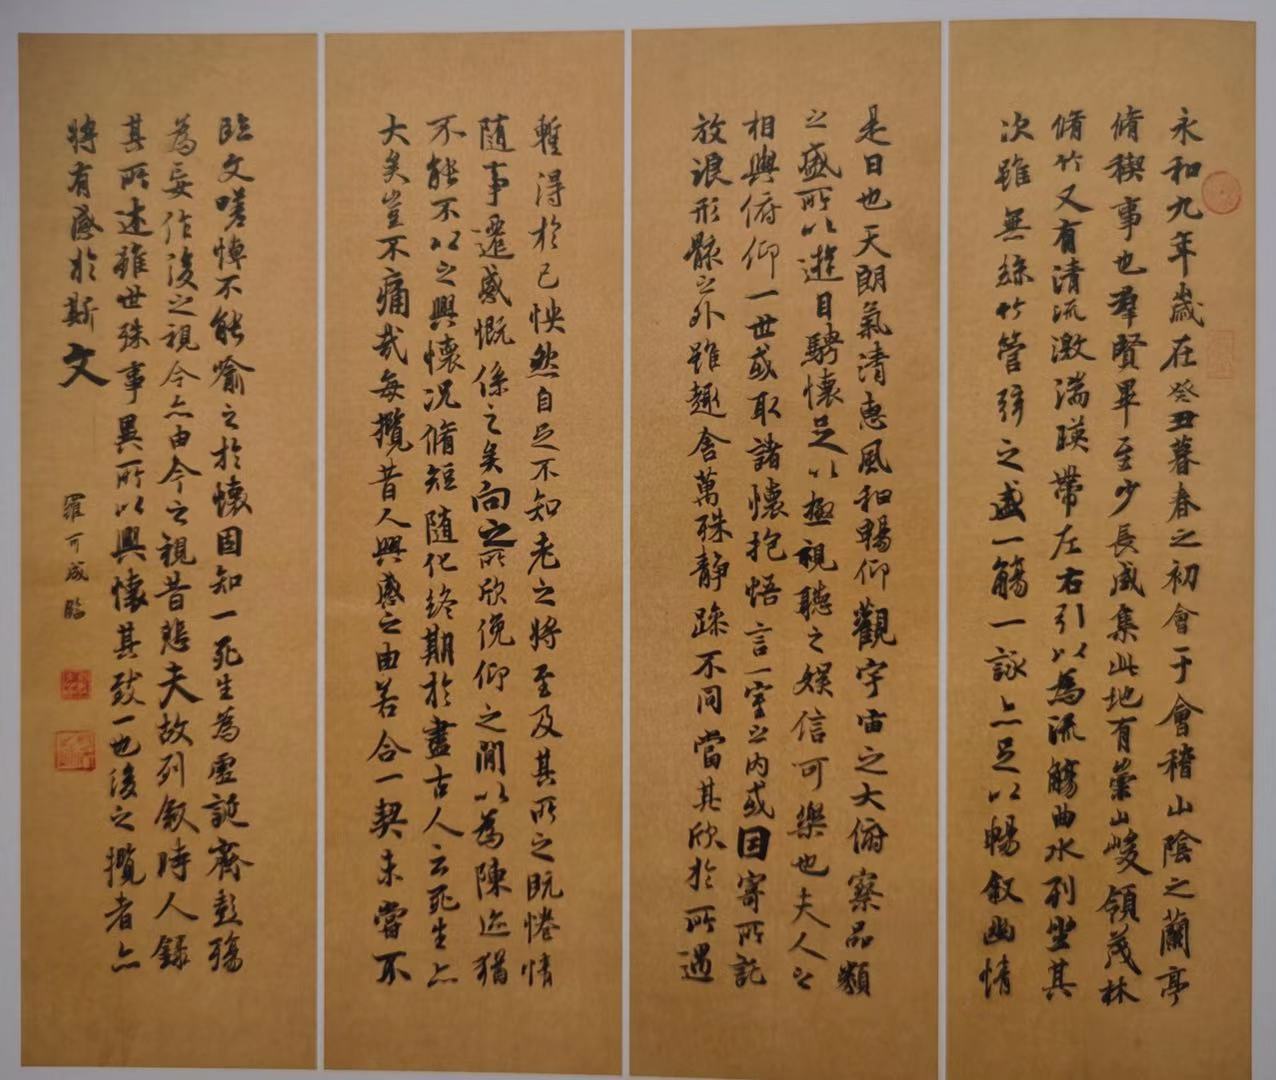 永和九年歲在癸丑暮春之初會于會稽山陰之蘭亭
脩稧事也羣賢畢至少長咸集此地有崇山峻領茂林
脩竹又有清流激湍暎帶左右引以為流觴曲水列坐其
次雖無絲竹管弦之盛一觴一詠亦足以暢叙幽情
是日也天朗氣清惠風和暢仰觀宇宙之大俯察品類
之盛所以遊目騁懷足以極視聽之娛信可樂也夫人之
相與俯仰一世或取諸懷抱悟言一室之內或因寄所託
放浪形骸之外雖趣舍萬殊靜躁不同當其欣於所遇
暫得於己怏然自足不知老之將至及其所之既惓情
隨事遷感慨係之矣向之所欣俛仰之閒以為陳迹猶
不能不以之興懷況脩短隨化終期於盡古人云死生亦
大矣豈不痛哉每攬昔人興感之由若合一契未嘗不
臨文嗟悼不能喻之於懷固知一死生為虛誕齊彭殤
為妄作後之視今亦由今之視昔悲夫故列叙時人錄
其所述雖世殊事異所以興懷其致一也後之攬者亦
將有感於斯文
羅可成臨